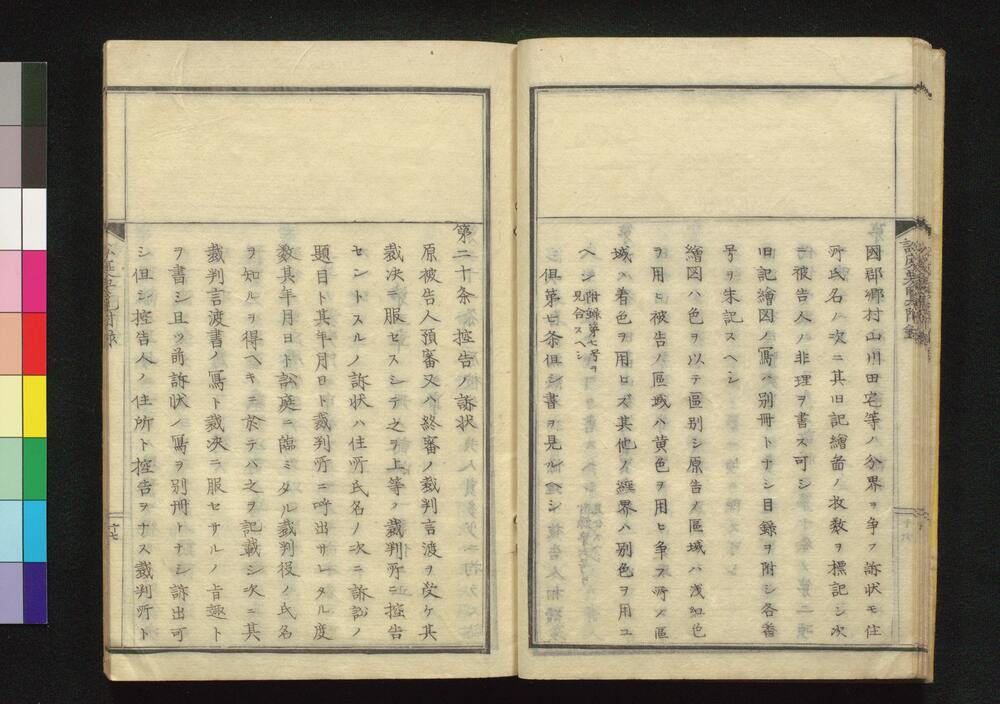 國郡郷村山川田宅等ノ分界ヲ争フ訴状モ住
所氏名ノ次ニ其旧記繪啚ノ枚数ヲ標記シ次
ニ被告人ノ非理ヲ書ス可シ
旧記繪図ノ寫ハ別冊トナシ目録ヲ附シ各番
号ヲ朱記スヘシ
繪図ハ色ヲ以テ區别シ原告ノ區域ハ浅紅色
ヲ用ヒ被告ノ區域ハ黄色ヲ用ヒ争フ所ノ區
域ハ着色ヲ用ヒズ其他ノ經界ハ别色ヲ用ユ
ヘシ附録第七号ヲ見合スヘシ
但第七条但シ書ヲ見ルヘシ
第二十条 控告ノ訴状
原被告人預審又ハ終審ノ裁判言渡ヲ受ケ其
裁决ニ服セスシテ之ヲ上等ノ裁判所ニ控告
セントスルノ訴状ハ住所氏名ノ次ニ訴訟ノ
題目ト其年月日ト裁判所ニ呼出サレタル度
数其年月日ト訟庭ニ臨ミタル裁判役ノ氏名
ヲ知ルヲ得ヘキニ於テハ之ヲ記載シ次ニ其
裁判言渡書ノ寫ト裁决ニ服セサルノ旨趣ト
ヲ書シ且ツ前訴状ノ寫ヲ别冊トナシ訴出可
シ但シ控告人ノ住所ト控告ヲナス裁判所ト